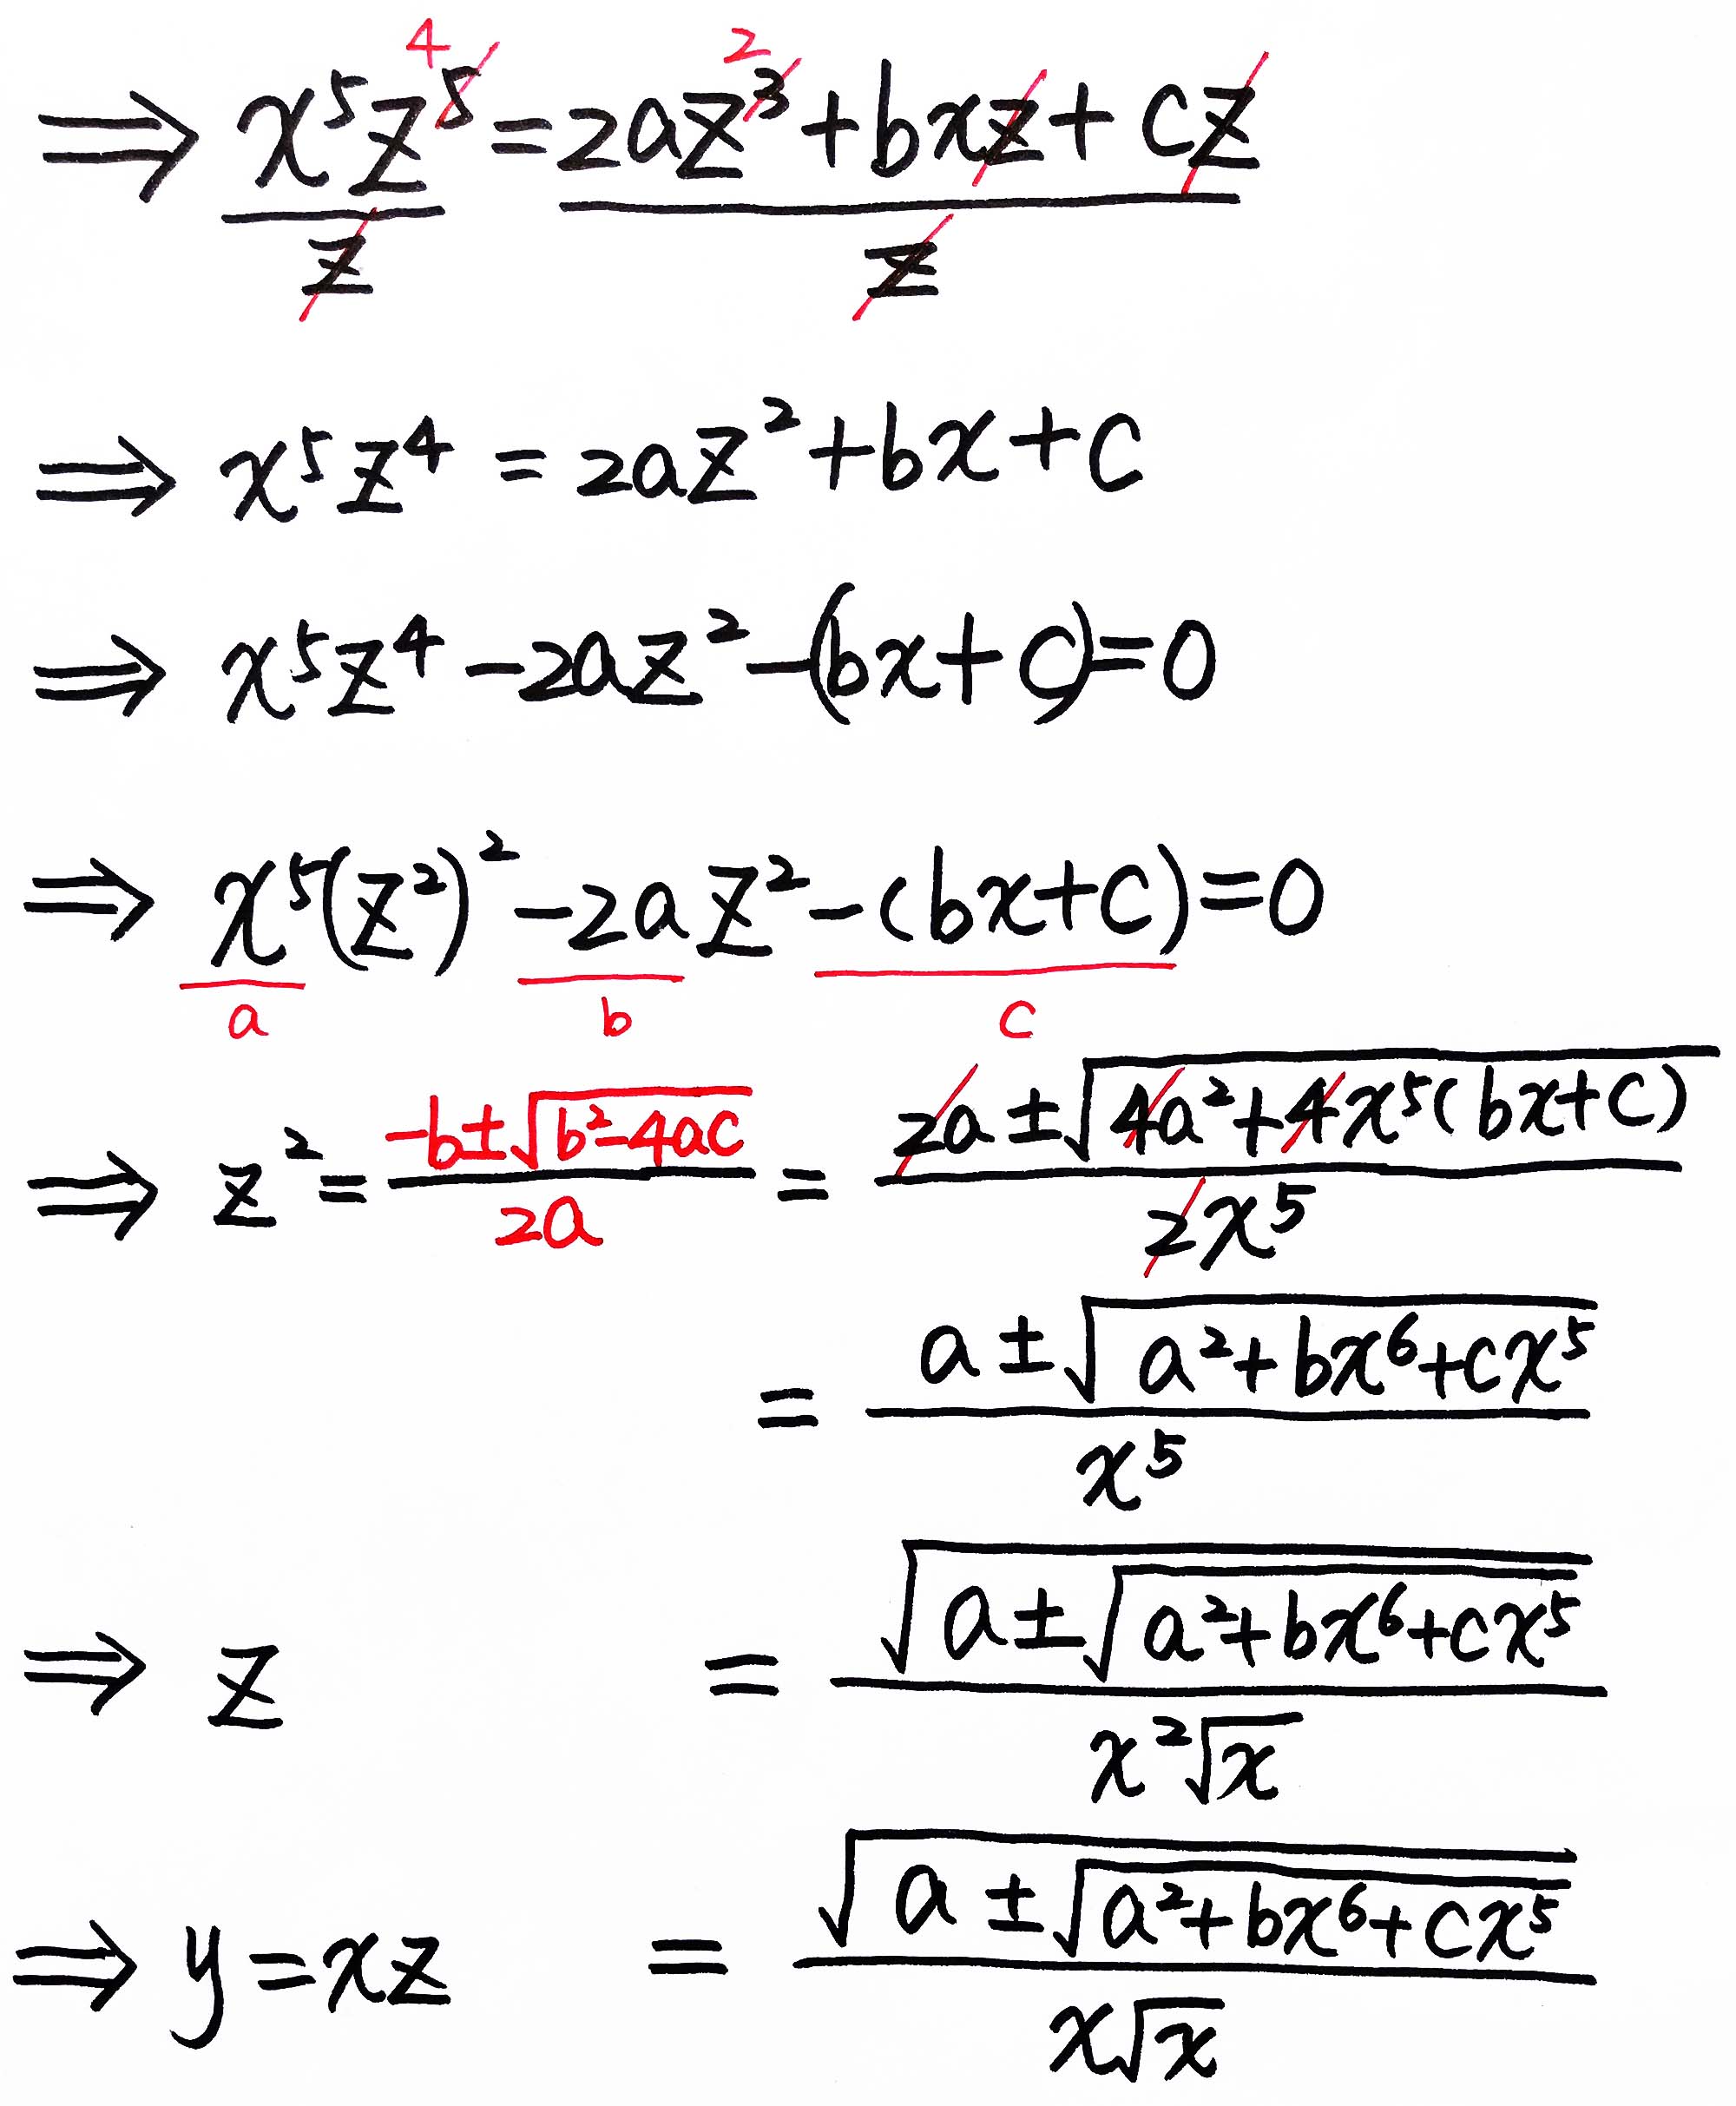 ⇒ x⁵z⁵⁴/z = (2az³² + bxz + cz)/z
⇒ x⁵z⁴ = 2az² + bx + c
⇒ x⁵z⁴ - 2az² - (bx + c) = 0
⇒ x⁵(z²)² - 2az² - (bx + c) = 0
a b c
⇒ z² = (-b ± √(b² - 4ac))/2a = (2a ± √(4a² + 4x⁵(bx + c)))/2x⁵
= (a ± √(a² + bx⁶ + cx⁵))/x⁵
⇒ z = √(a ± √(a² + bx⁶ + cx⁵))/x²√x
⇒ y = xz = √(a ± √(a² + bx⁶ + cx⁵))/x√x